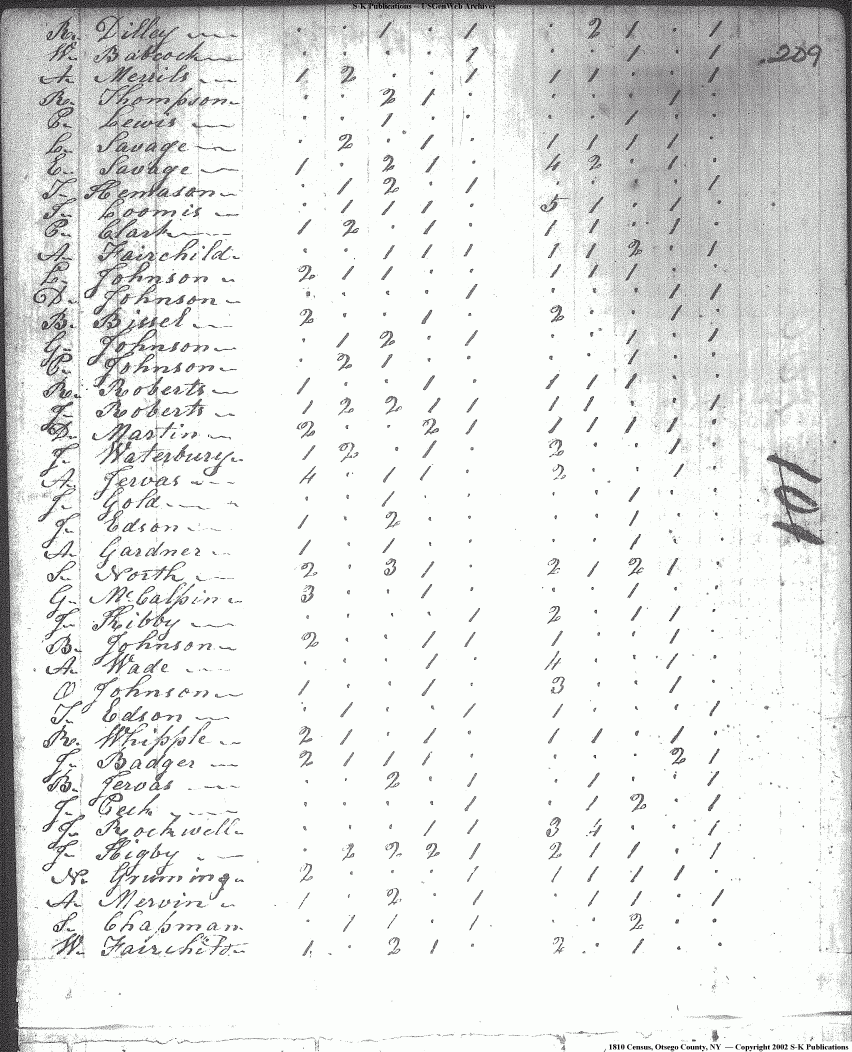 S-K Publications – USGenWeb Archives
R. Dilley · · 1 · 1 · 2 1 · 1
W. Babcock · · · · 1 · · 1 · 1 209
A. Merrils 1 2 · · 1 1 1 · · 1
R. Thompson · · 2 1 · · · · 1 ·
Lewis · · 1 · · · · 1 · ·
L. Savage · 2 · 1 · 1 1 1 1 ·
E. Savage 1 · 2 1 · 4 2 · 1 ·
· 1 2 · 1 · · · · 1
Loomis · 1 1 1 · 5 1 · 1 ·
Clark 1 2 · 1 · 1 1 · 1 ·
A. Fairchild · · 1 1 1 1 1 2 · 1
Johnson 2 1 1 · · 1 1 1 · ·
D. Johnson · · · · 1 · · · 1 1
B. Bissel 2 · · 1 · 2 · · 1 ·
G. Johnson · 1 2 · 1 · · 1 · 1
Johnson · 2 1 · · · · 1 · ·
R. Roberts 1 · · 1 · 1 1 1 · ·
J. Roberts 1 2 2 1 1 1 1 · · 1
D. Martin 2 · · 2 1 1 1 1 1 ·
J. Waterbury 1 2 · 1 · 2 · · 1 ·
A. Jervas 4 · 1 1 · 2 · · 1 ·
J. Gold · · 1 · · · · 1 · ·
J. Edson 1 · 2 · · · · 1 · ·
101
A. Gardner 1 · 1 · · · · 1 · ·
S. North 2 · 3 1 · 2 1 2 1 ·
G. McCalpin 3 · · 1 · · · 1 · ·
J. Kibby · · · · 1 2 · 1 1 ·
B. Johnson 2 · · 1 1 1 · · 1 ·
A. Wade · · · 1 · 4 · · 1 ·
O Johnson 1 · · 1 · 3 · · 1 ·
T. Edson · 1 · · 1 1 · · · 1
R. Whipple 2 1 · 1 · 1 1 · 1 ·
J. Badger 2 1 1 1 · · · · 2 1
B. Jervas · · 2 · 1 · 1 · · 1
J. Peck · · · · 1 · 1 2 · 1
J. Rockwell · · · 1 1 3 4 · · 1
J. Higby · 2 2 2 1 2 1 1 · 1
N. Grumming 2 · · · 1 1 1 1 1 ·
A. Mervin 1 · 2 · 1 · 1 1 · 1
S. Chapman · 1 1 · 1 · · 2 · ·
W. Fairchild 1 · 2 1 · 2 · 1 · ·
1810 Census, Otsego County, NY — Copyright 2002 S-K Publications